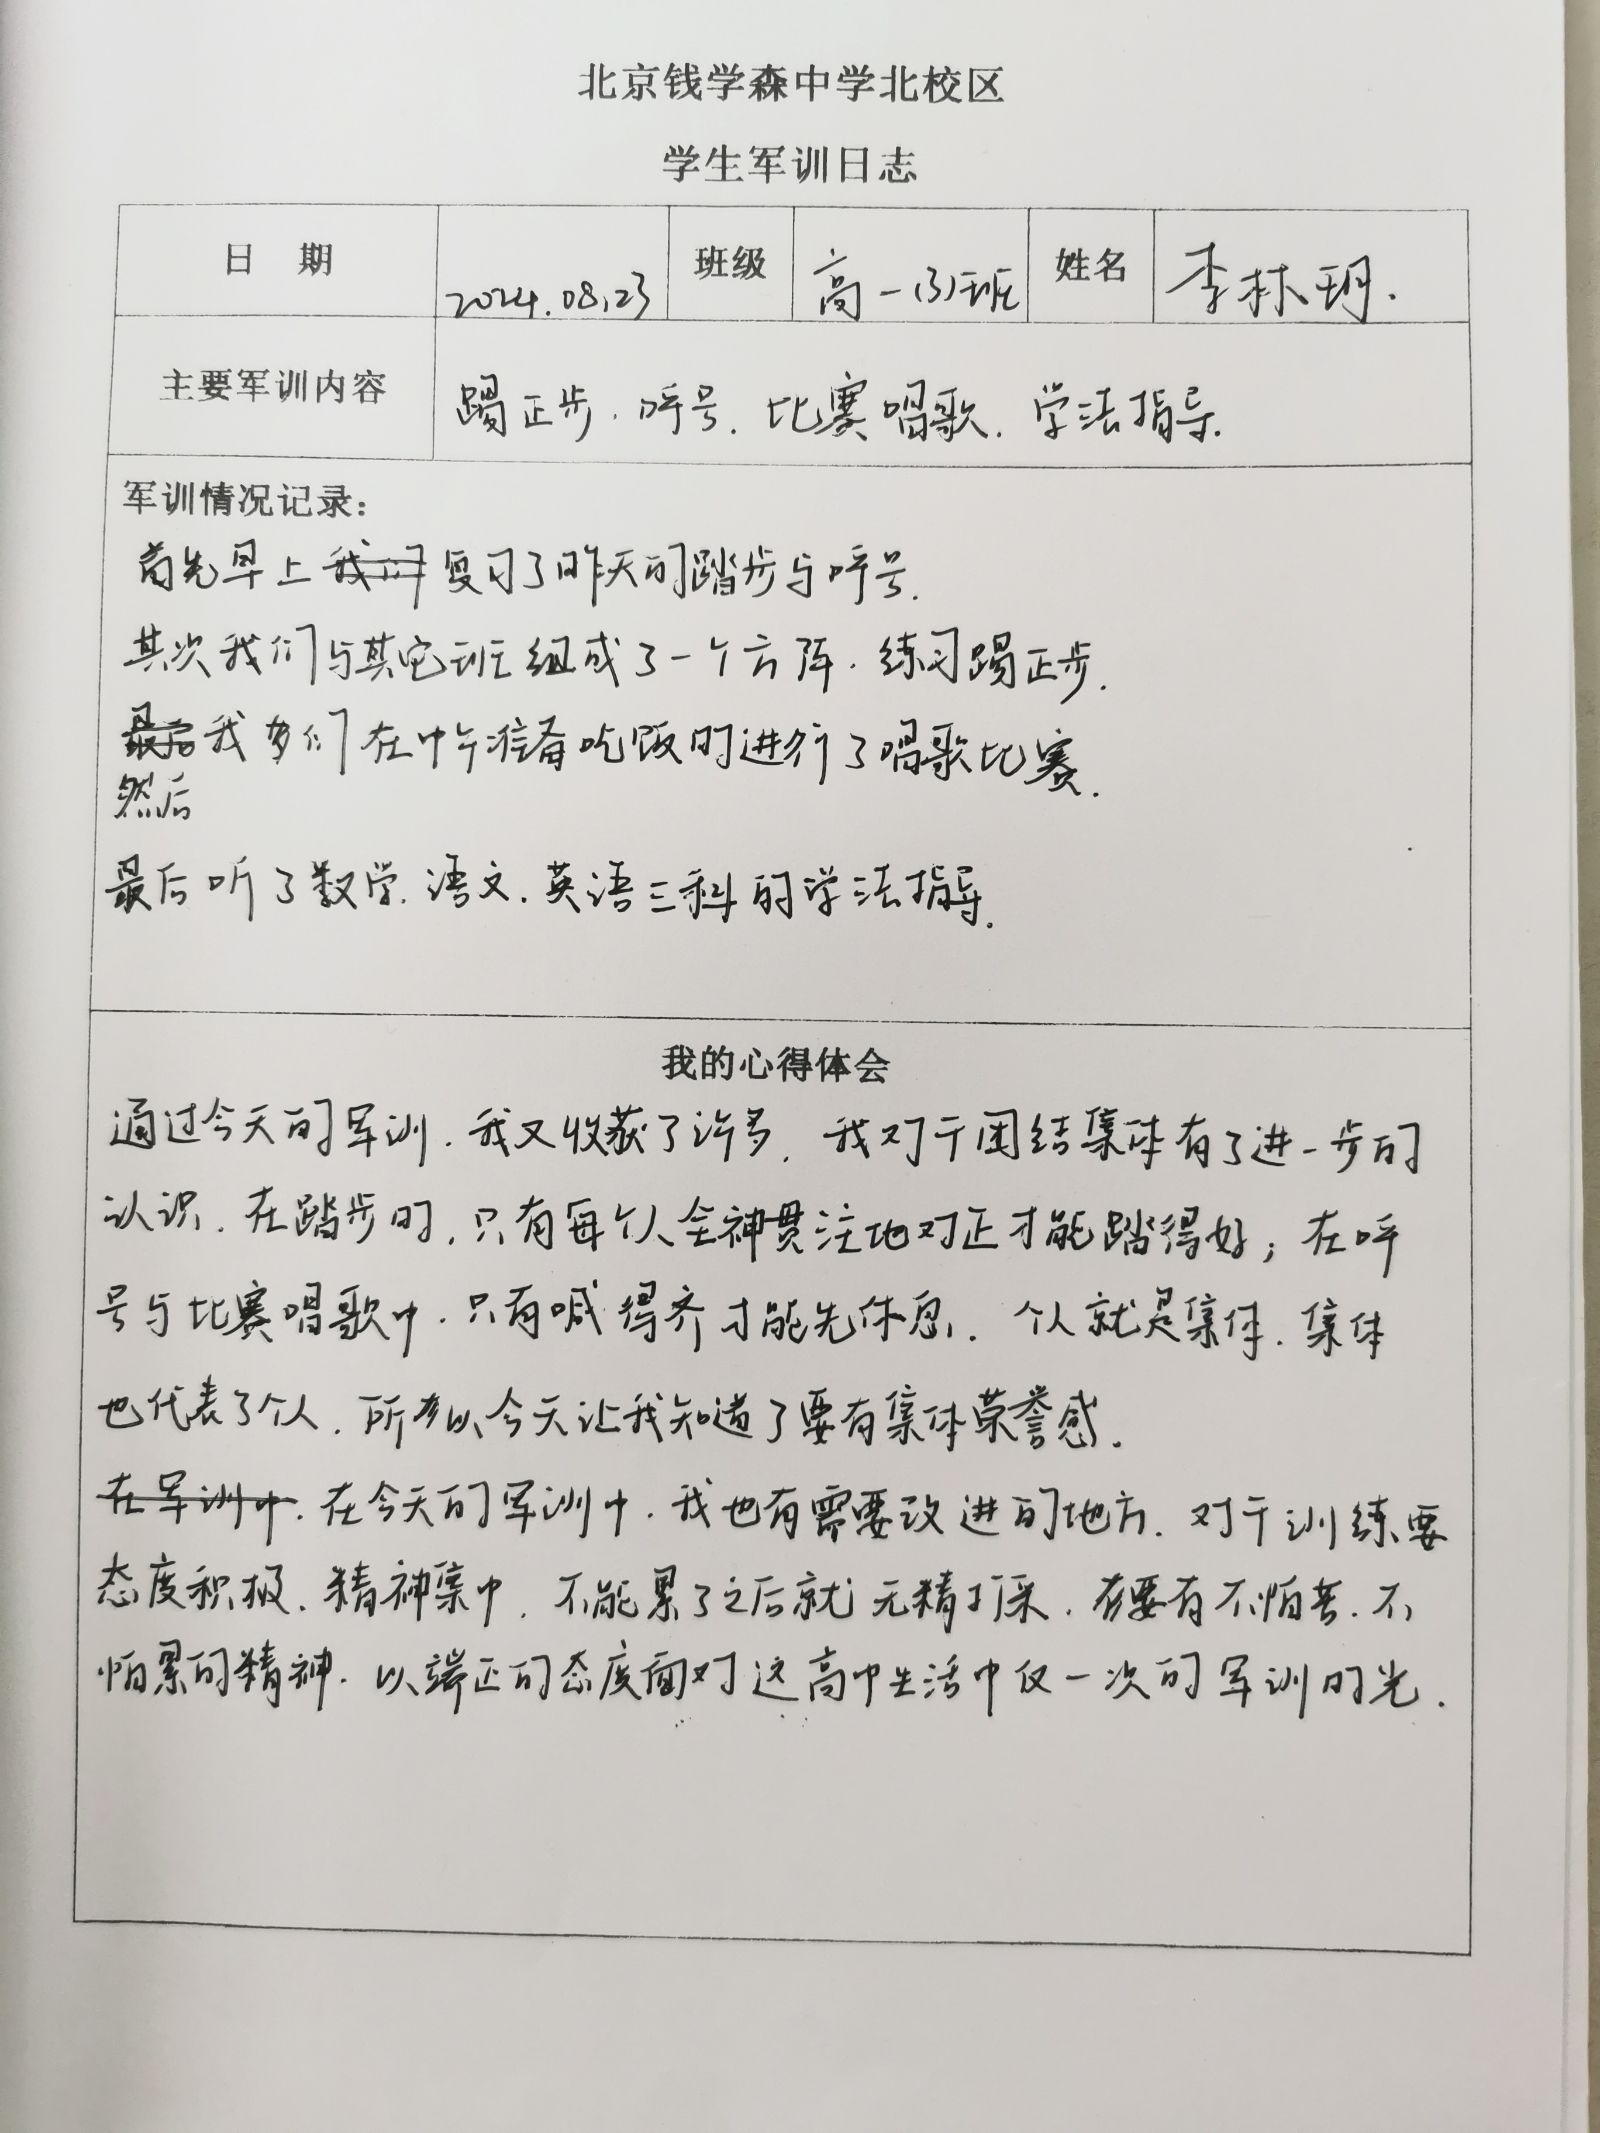 北京钱学森中学北校区
学生军训日志
日 期 2024.08.23 班级 高一(3)班 姓名 李林玥.
主要军训内容 踢正步.呼号.比赛唱歌.学法指导.
军训情况记录:
首先早上我们复习了昨天的踏步与呼号.
其次我们与其它班组成了一个方阵.练习踢正步.
最后我们在中午准备吃饭时进行了唱歌比赛.
然后
最后听了数学.语文.英语三科的学法指导.
我的心得体会
通过今天的军训.我又收获了许多.我对于团结集体有了进一步的
认识.在踏步时,只有每个人全神贯注地对正才能踏得好;在呼
号与比赛唱歌中.只有喊得齐才能先休息.个人就是集体.集体
也代表了个人.所以今天让我知道了要有集体荣誉感.
在军训中.在今天的军训中.我也有需要改进的地方.对于训练要
态度积极.精神集中.不能累了之后就无精打采.要有不怕苦.不
怕累的精神.以端正的态度面对这高中生活中仅一次的军训时光.